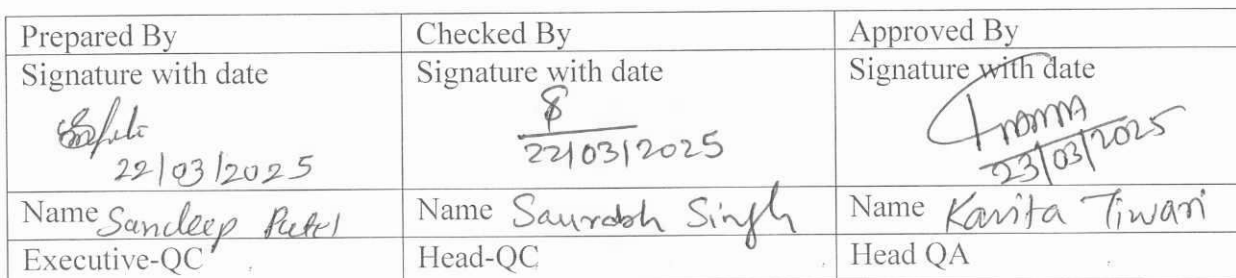 Prepared By
Checked By
Approved By
Signature with date
Signature with date
Signature with date
22/03/2025
22/03/2025
23/03/2025
Name Sandeep Patel
Name Saurabh Singh
Name Kavita Tiwari
Executive-QC
Head-QC
Head QA